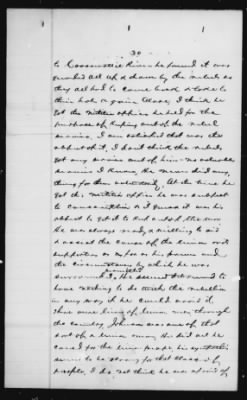 30
to Coosawattie River he found it was
guarded all up & down by the rebels as
they all had to come back & look to
their hole again Alone. I think he
got the office he had for the
purpose of keeping out of the rebel
service. I am satisfied that was the
object of it, I don't think the rebels
got any service out of him - no valuable
service I know, he never did any
thing for them. At the time he
got this office he was subject
to conscription & I guess it was his
object to get it to keep out of the war
He was always ready & willing to aid
& assist the cause of the union and
supporters as far as his power and
the circumstances by which he was
surrounded permitted. He seemed to
have nothing to do with the rebellion
in any way if he could avoid it,
there were lots of union men through
the country, Johnson was one of that
sort of a union man. He did all he
could for the union people his
seems to be strong for that class of
people, I do not think he was afraid of